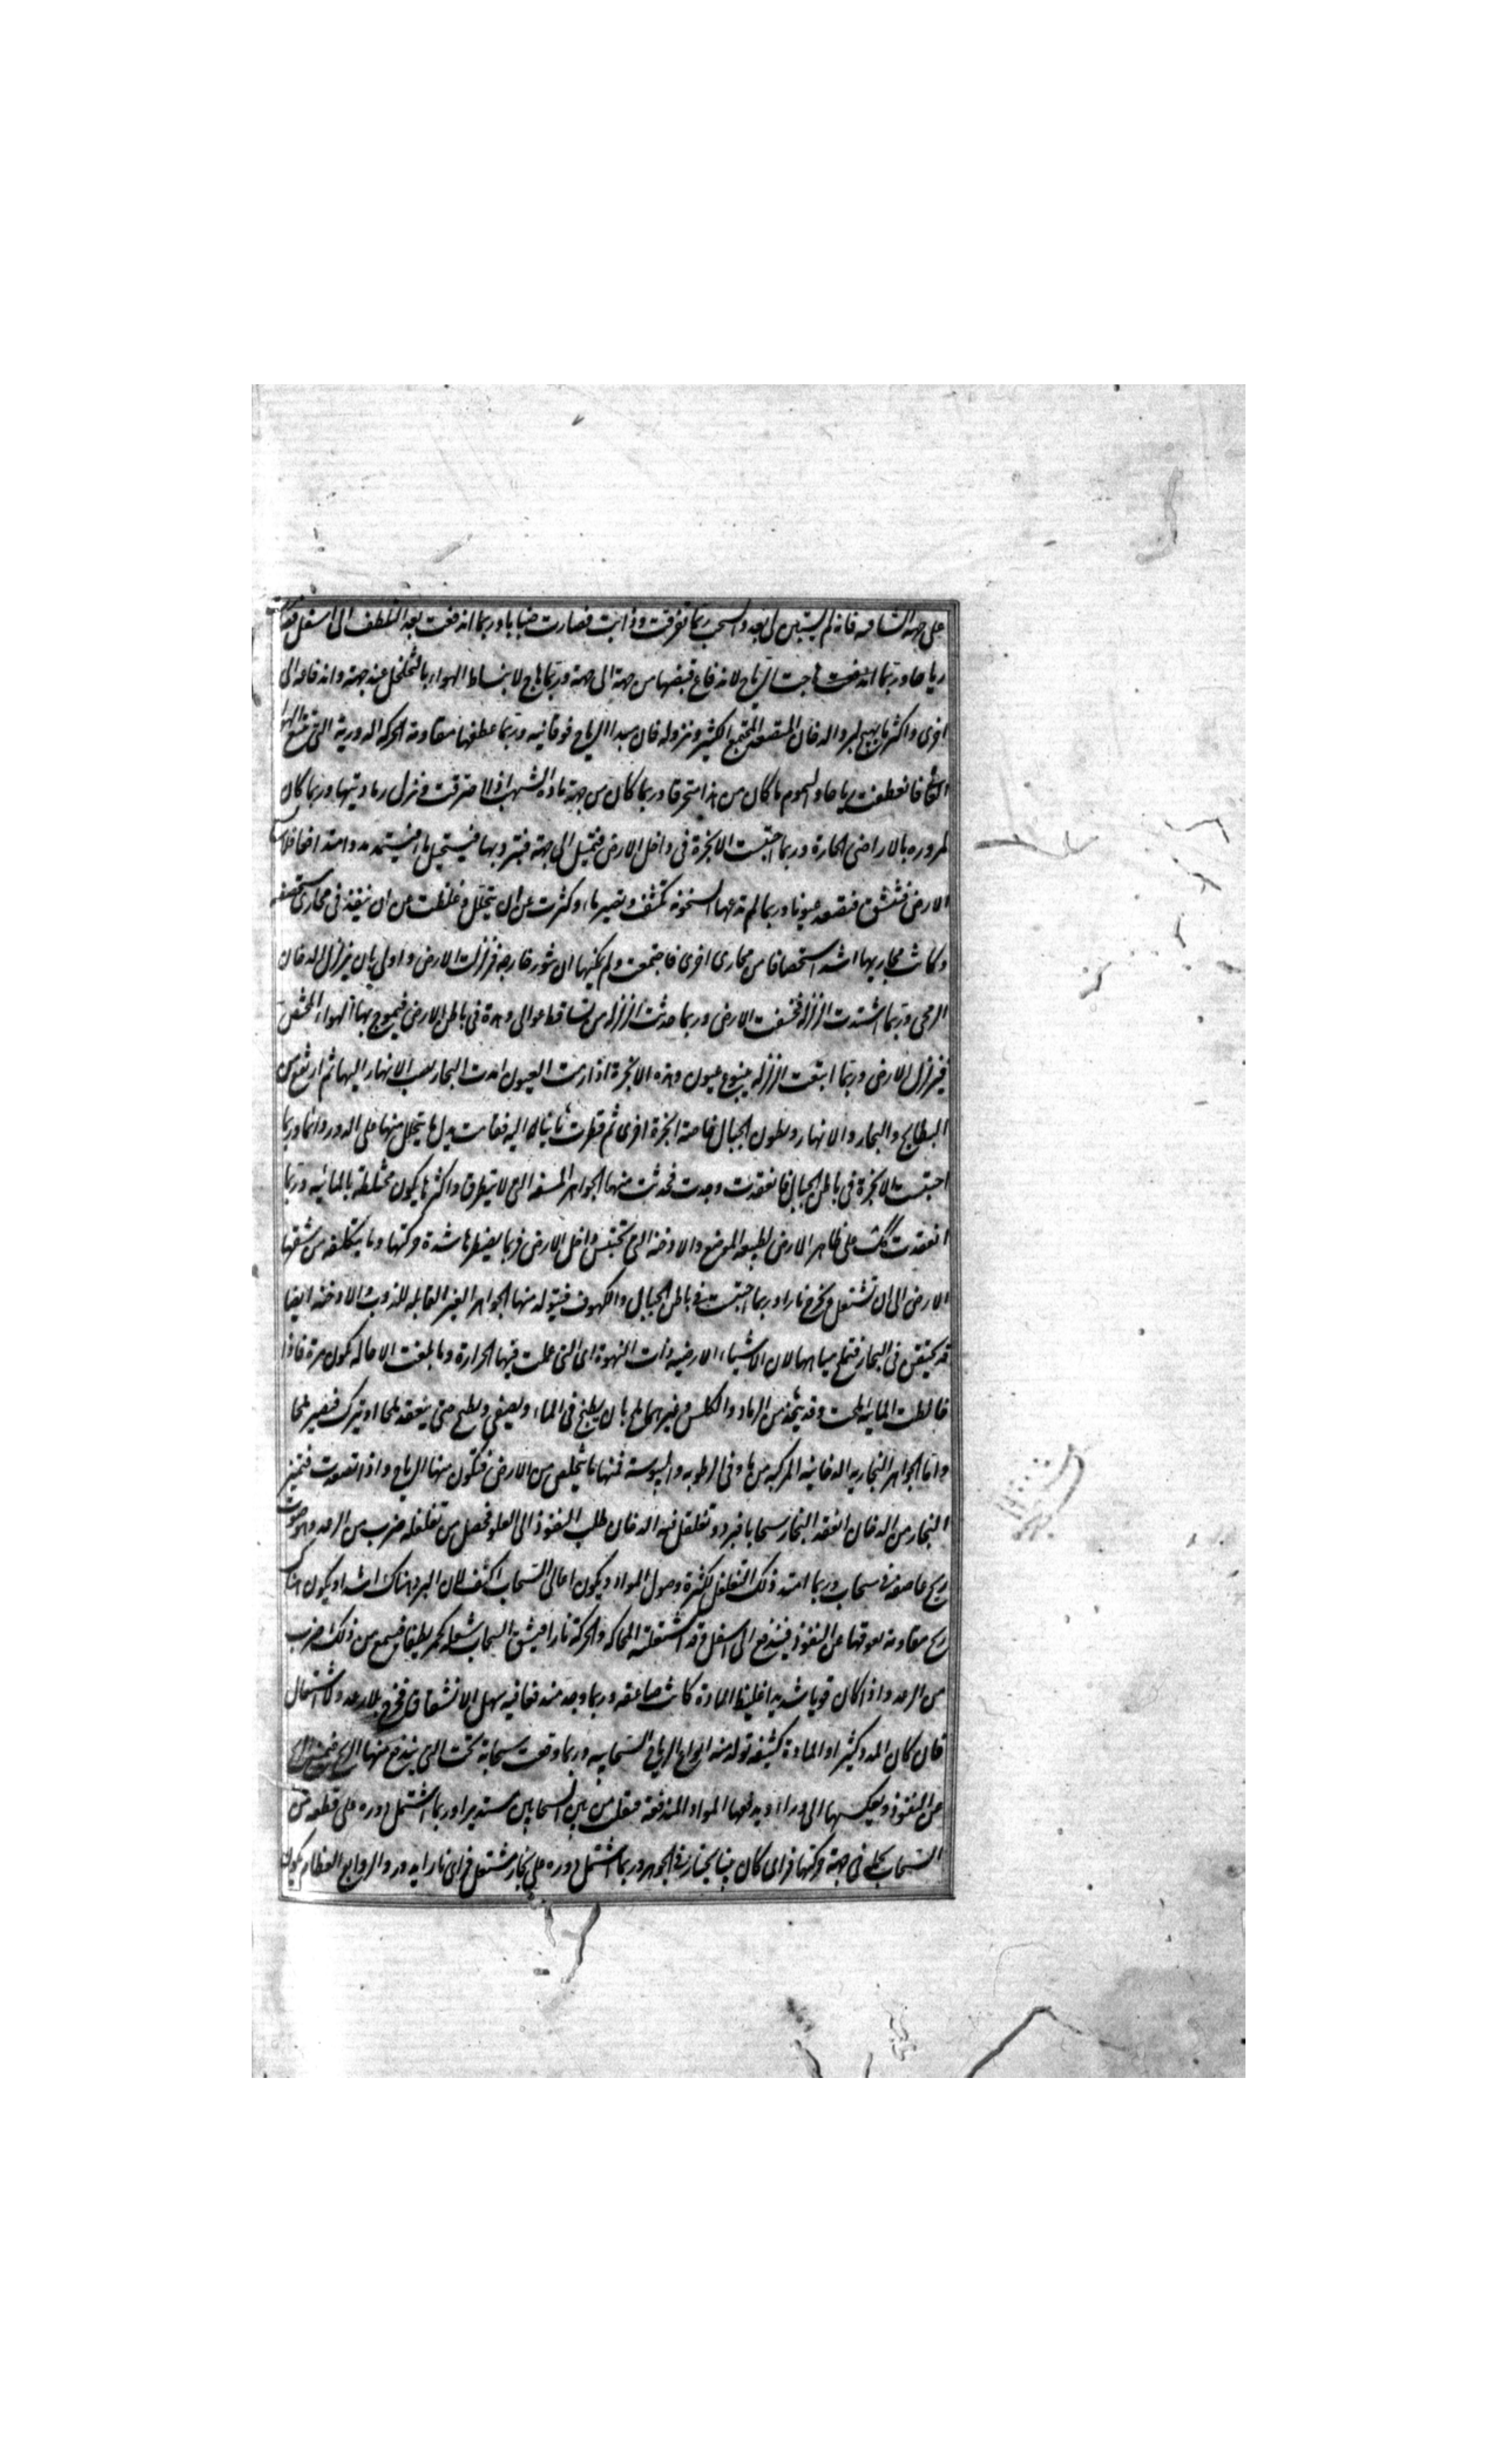 على جهة الشافه فانه لم يستبين لى بعد والسحب ربما تفرقت وذابت فصارت ضبابا وربما اندفعت بعد التلطف الى اسفل فصار
رياحا وربما هاجت الرياح لاندفاع فيضها من جهة الى جهة وربما هاج لانبساط الهواء بالتخلخل عند جهة واندفاعه الى
اخرى واكثر ما يهيج لبرد الدخان المتصعد المجتمع الكثير ونزوله فان مبدا الرياح فوقانيه وربما عطفها مقاومة الحركه الدورية التى تتبع الهوا
العالى فانعطفت رياحا والسموم ما كان من هذا محترقا وربما كان من جهة مادة الشهب اذا احترقت ونزل رماديتها وربما كان
لمروره بالاراضى الحارة وربما احتبست الابخرة فى داخل الارض فتميل الى جهة فتبرد بها فيستحيل ماء فيستمد مددا متدافعا فلا
الارض فتنشق فتصعد عيونا وربما لم تدعها السخونة تكثف وتصير ماء وكثرت عن ان يتحلل وغلظت عن ان ينفذ فى مجارى مستحصفه
وكانت مجاريها اشد استحصافا من مجارى اخرى فاجتمعت ولم يمكنها ان تثور خارجه فزلزلت الارض واولى بان يزلزل الدخان
الريحى وربما اشتدت الزلزله فخسفت الارض وربما حدثت الزلزله من تساقط عوالى وهدة فى باطن الارض فيموج بها الهواء المحتقن
فيزلزل الارض وربما اتبعت الزلزله نبوع عيون وهذه الابخرة اذا ادرت العيون امدت البحار بصب الانهار اليها ثم ارتفع من
البطايح والبحار والانهار وبطون الجبال خاصة ابخرة اخرى ثم قطرت ثانيا اليه فقامت بدل ما يتحلل منها على الدور دائما وربما
احتبست الابخرة فى باطن الجبال فانعقدت وجمدت فحدثت منها الجواهر المشفه التى لا يتطرق واكثرها يكون مختلطة بالمائيه وربما
انعقدت كذلك على ظاهر الارض لطبيعه الموضع والادخنه التى تحتبس داخل الارض فربما يضطرها شدة حركتها وما يتكلفه من شقها
الارض الى ان تشتعل وتخرج نارا وربما احتبست فى باطن الجبال والكهوف فيتولد منها الجواهر الغير القابله للذوب والادخنه ايضا
قد تحتقن فى البحار فتملح مياهها لان الاشياء الارضيه ذات النهوة اى التى عملت فيها الحرارة وما بلغت الاحاله تكون مرة فاذا
خالطت المائيه ملحت وقد يتخذ من الرماد والكلس وغيرهما ملح بان يطبخ فى الماء ويصفى ويطبخ حتى ينعقد ملحا او يترك فيصير ملحا
واما الجواهر البخاريه الدخانيه المركبه من مادتى الرطوبه واليبوسة فمنها ما يتخلص من الارض فتكون منها الرياح واذا تصعدت فتميز
البخار من الدخان انعقد البخار سحابا فبرد وتغلغل فيه الدخان طلب النفوذ الى العلو فحصل من تغلغله ضرب من الرعد وهو صوت
ريح عاصفه فى سحاب وربما امتد ذلك التغلغل لكثرة وصول المواد ويكون اعالى السحاب اكثف لان البرد هناك اشد او يكون هناك
ريح مقاومة يعوقها عن النفوذ فيندفع الى اسفل وقد اشتعلته المحاكه والحركة نارا فيشق السحاب شعله كجمر يطفا فيسمع من ذلك ضرب
من الرعد واذا كان قويا شديدا غليظ المادة كانت صاعقه وربما وجد مندفعا فيه سهل الانشقاق فخرج بلا رعد ولا اشتعال
فان كان المدد كثيرا والمادة كثيفه تولد منه انواع الرياح السحابيه وربما وقعت سحابة تحت التى يندفع منها الريح فيمنع الريح
عن النفوذ ويعكسها الى وراء ويدفعها المواد المندفعة فتفلت من بين السحابين مستديرا وربما اشتمل دوره على قطعه من
السحاب على جهة حركتها فراى كان تنينا يجتاز فى الجو وربما اشتمل دوره على بخار مشتعل فراى نارا يدور والزوابع العظام تكون